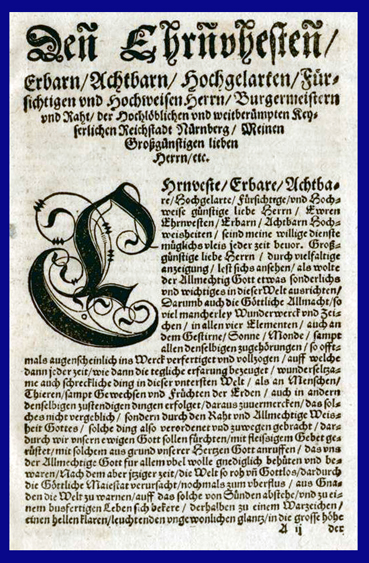 Den Ehrnvhesten/
Erbarn/Achtbarn/ Hochgelarten/Für-
sichtigen vnd Hochweisen Herrn/ Burgermeistern
vnd Raht/ der Hochlöblichen vnd weitberümpten Key-
serlichen Reichstadt Nürnberg/ Meinen
Großgünstigen lieben
Herrn/etc.
EHrnveste/Erbare/Achtba-
re/Hochgelarte/Fürsichtige/vnd Hoch-
weise günstige liebe Herrn/ Ewren
Ehrnvesten/Erbarn/Achtbarn Hoch-
weisheiten/ seind meine willige dienste
müglichs vleis jeder zeit beuor. Groß-
günstige liebe Herrn/ durch vielfaltige
anzeigung/ lest sichs ansehen/als wolte
der Allmechtig Gott etwas sonderlichs
vnd wichtiges in dieser Welt ausrichten/
Darumb auch die Göttliche Allmacht/so
viel mancherley Wunderwerck vnd Zei-
chen/ in allen vier Elementen/ auch an
dem Gestirne/Sonne/Monde/ sampt
allen denselbigen zugehörungen/ so offt-
mals augenscheinlich ins Werck verfertiget vnd vollzogen/ auff welche
dann jeder zeit/wie dann die tegliche erfarung bezeuget/ wunderselza-
me auch schreckliche ding in dieser vntersten Welt/ als an Menschen/
Thieren/sampt Gewechsen vnd Früchten der Erden/ auch in andern
denselbigen zustendigen dingen erfolget/daraus zuuermercken/das sol-
ches nicht vergeblich/ sondern durch den Raht vnd Allmechtige Weis-
heit Gottes/ solche ding also verordenet vnd zuwegen gebracht/ dar-
durch wir vnsern ewigen Gott sollen fürchten/mit fleissigem Gebet ge-
rüstet/mit solchem aus grund vnserer Hertzen Gott anruffen/ das vns
der Allmechtige Gott für allem vbel wolle gnediglich behüten vnd be-
waren/Nach dem aber jtziger zeit/die Welt so roh vñ Gottlos/dardurch
die Göttliche Maiestat verursacht/nochmals zum vberflus/ aus Gna-
den die Welt zu warnen/auff das solche von Sünden abstehe/vnd zu ei-
nem busfertigen Leben sich bekere/ derhalben zu einem Warzeichen/
einen hellen klaren/leuchtenden vngewonlichen glantz/in die grosse höhe
A ij der